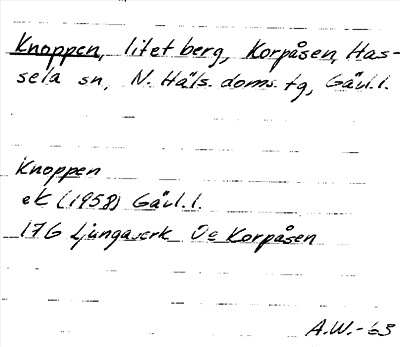 Knoppen, litet berg, Korpåsen, Has-
sela sn, N. Häls. doms. tg, Gävl. l.
Knoppen
ek (1958) Gävl. l.
17G Ljungaverk Öe Korpåsen
A.W.-63